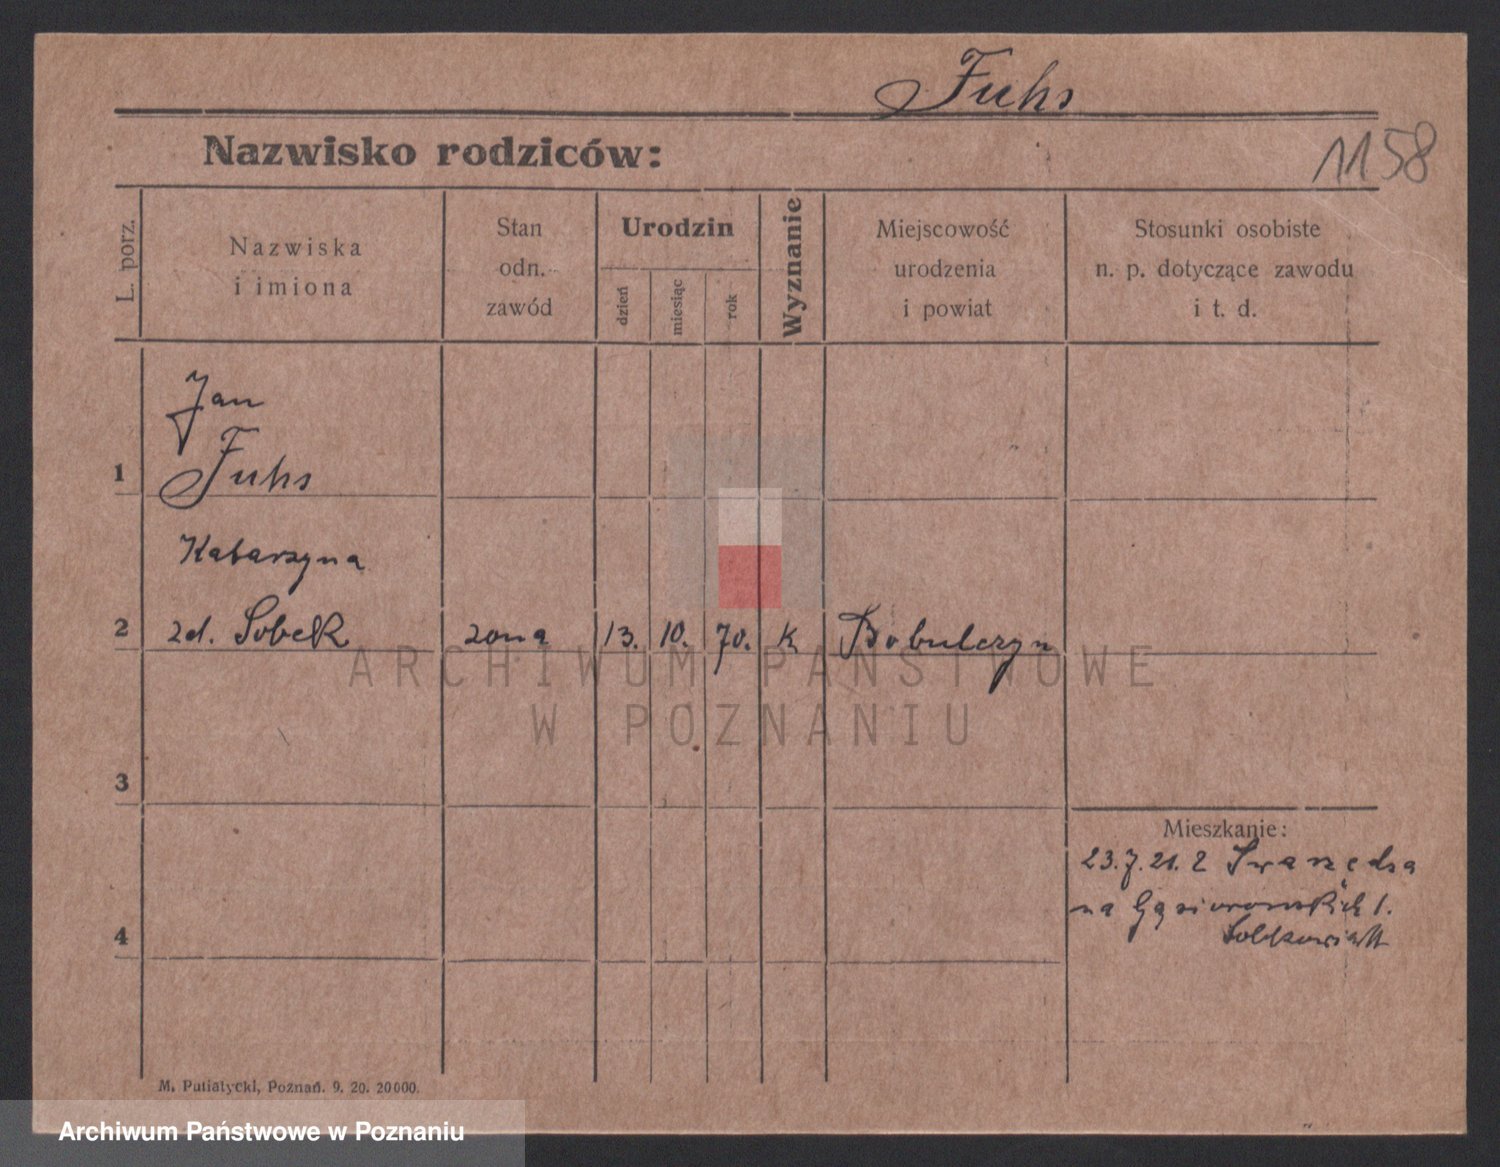 Fuhs
Nazwisko rodziców:
1158
L. porz.
Nazwiska
i imiona
Stan
odn.
zawód
Urodzin
dzień
miesiąc
rok
Wyznanie
Miejscowość
urodzenia
i powiat
Stosunki osobiste
n. p. dotyczące zawodu
i t. d.
Jan
1 Fuhs
Katarzyna
2 zd. Sobek żona 13. 10. 70. k Bobulczyn
3
4
Mieszkanie:
23.7.21. z Swarzędza
na Gąsiorowskich 1.
Sobkowiak
M. Putiatycki, Poznań. 9. 20. 20000.
ARCHIWUM PAŃSTWOWE
W POZNANIU
Archiwum Państwowe w Poznaniu